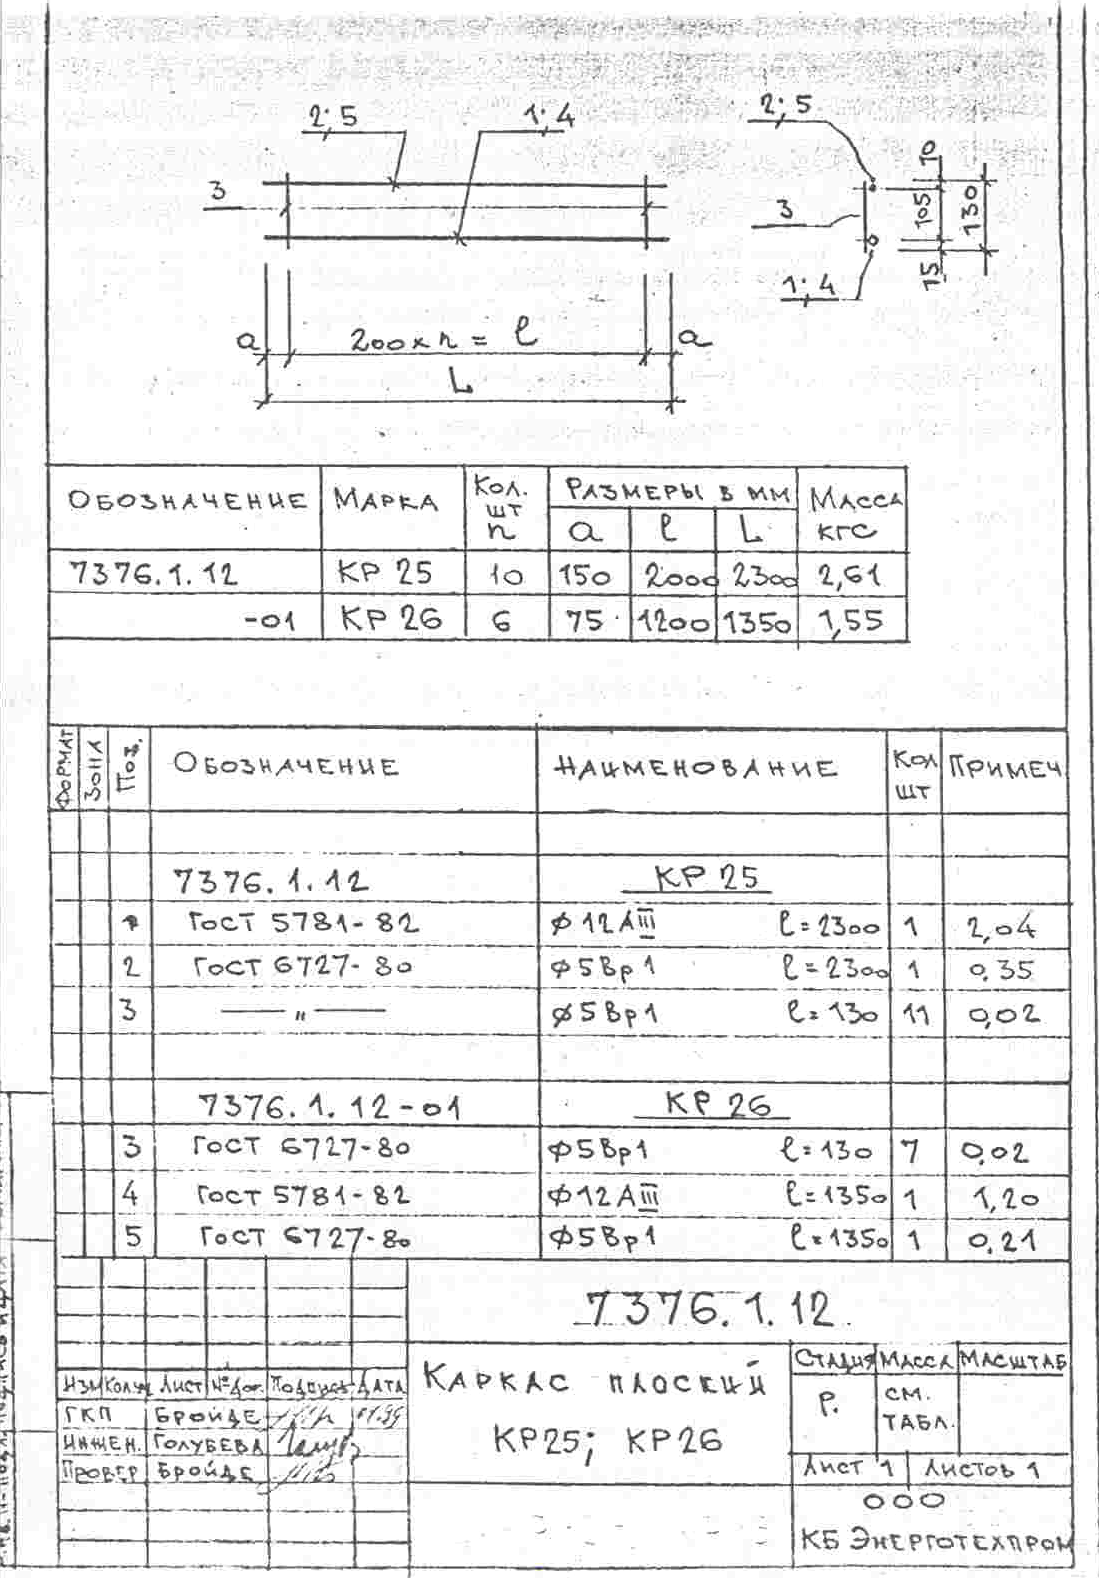 2; 5
1; 4
2; 5
3
3
10
105
130
15
1; 4
a
200×n = ℓ
a
L
ОБОЗНАЧЕНИЕ МАРКА КОЛ. ШТ n РАЗМЕРЫ В ММ МАССА КГС
a ℓ L
7376.1.12 КР 25 10 150 2000 2300 2,61
-01 КР 26 6 75 1200 1350 1,55
ФОРМАТ ЗОНА ПОЗ. ОБОЗНАЧЕНИЕ НАИМЕНОВАНИЕ КОЛ ШТ ПРИМЕЧ
7376.1.12 КР 25
ГОСТ 5781-82 ϕ12АIII ℓ=2300 1 2,04
2 ГОСТ 6727-80 ϕ5Вр1 ℓ=2300 1 0,35
3 — „ — ϕ5Вр1 ℓ=130 11 0,02
7376.1.12-01 КР 26
3 ГОСТ 6727-80 ϕ5Вр1 ℓ=130 7 0,02
4 ГОСТ 5781-82 ϕ12АIII ℓ=1350 1 1,20
5 ГОСТ 6727-80 ϕ5Вр1 ℓ=1350 1 0,21
7376.1.12
КАРКАС ПЛОСКИЙ
КР25; КР26
СТАДИЯ МАССА МАСШТАБ
Р. СМ. ТАБЛ.
ЛИСТ 1 ЛИСТОВ 1
ООО
КБ ЭНЕРГОТЕХПРОМ
ИЗМ КОЛ.УЧ ЛИСТ №ДОК. ПОДПИСЬ ДАТА
ГКП БРОЙДЕ
ИНЖЕН. ГОЛУБЕВА
ПРОВЕР БРОЙДЕ